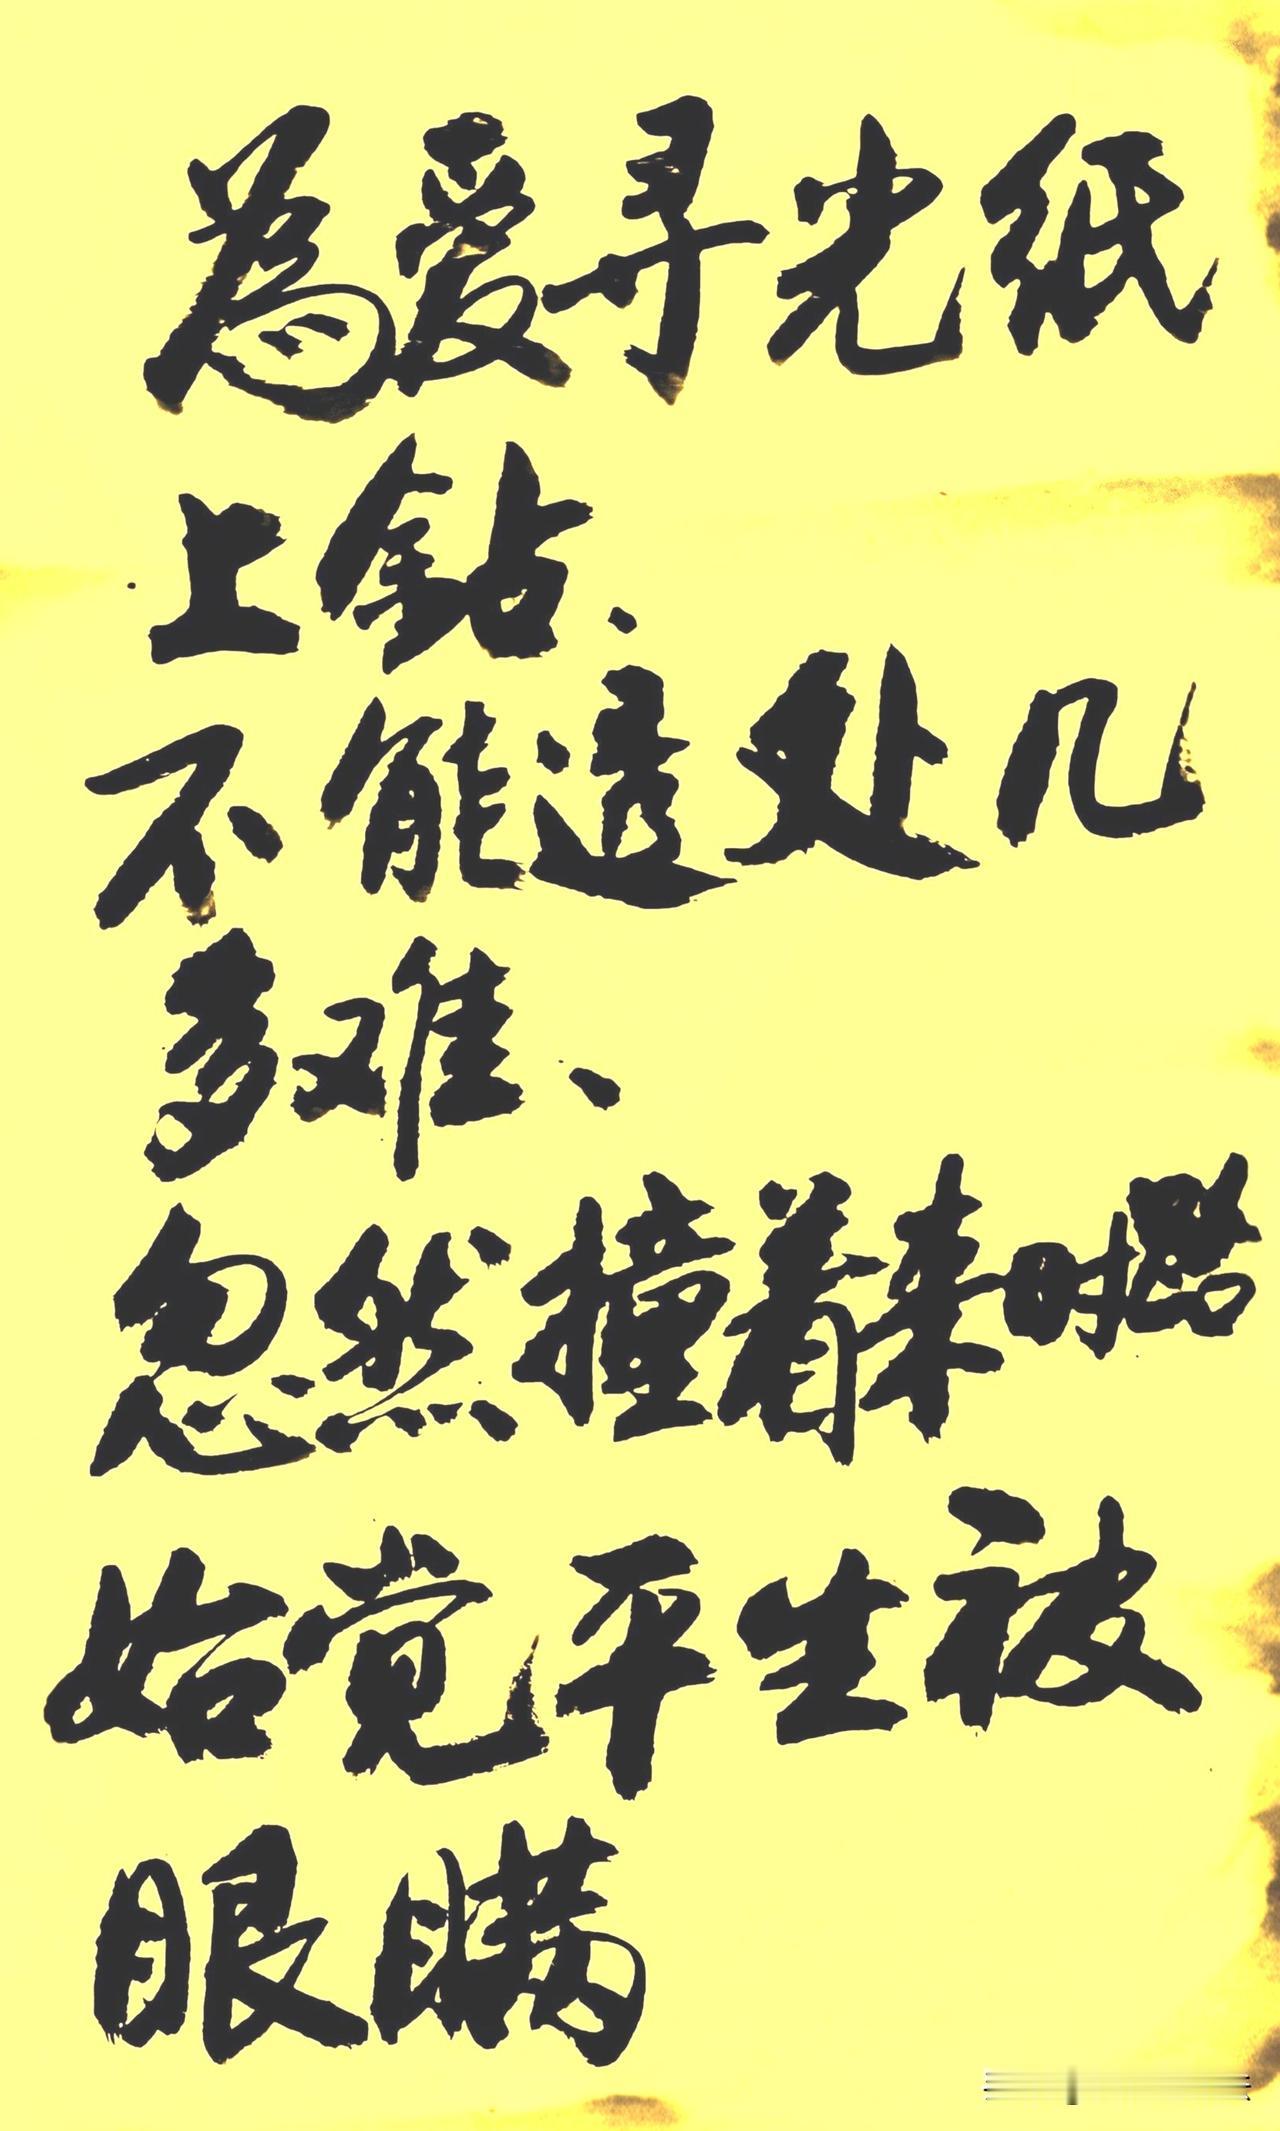 為爱寻光纸
上钻、
不能透处几
多难、
忽然撞着来时路
始觉平生被
眼瞒